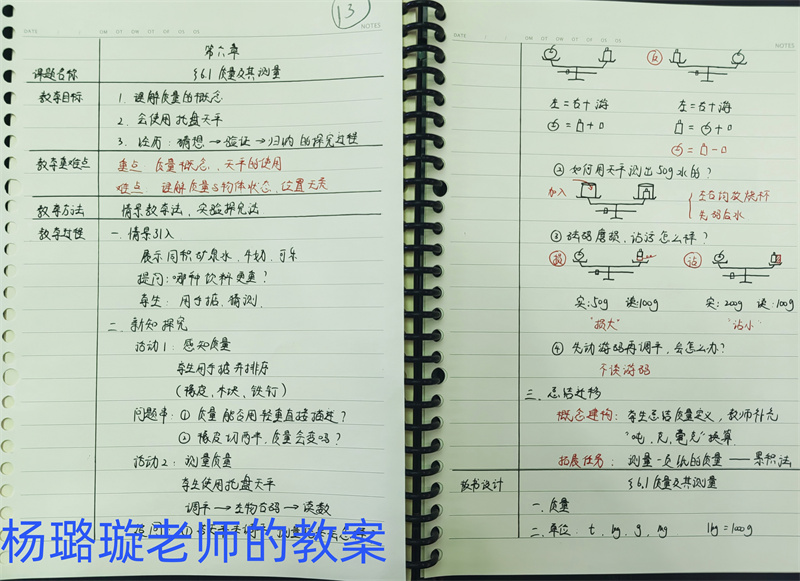 13
NOTES
DATE
第六章
课题名称 §6.1 质量及其测量
教学目标 1. 理解质量的概念
2. 会使用托盘天平
3. 经历：猜想→验证→归纳的探究过程
教学重难点 重点：质量概念、天平的使用
难点：理解质量与物体状态、位置无关
教学方法 情景教学法、实验探究法
教学过程 一. 情景引入
展示同积矿泉水、牛奶、可乐
提问：哪种饮料更重？
学生：用手掂、猜测.
二. 新知探究
活动1：感知质量
学生用手掂并排序
(橡皮、木块、铁钉)
问题串：① 质量能否用轻重直接描述？
② 橡皮切两半，质量会变吗？
活动2：测量质量
学生使用托盘天平
调平→左物右码→读数
杨璐璇老师的教案
DATE
NOTES
反
左=右+游 左=右+游
② 如何用天平测出50g水的？
加入
左右均放烧杯
先码后水
③ 砝码磨损、沾污怎么样？
损 沾
实：50g 读：100g 实：200g 读：100g
"损大" "沾小"
④ 先动游码再调平，会怎么办？
不读游码
三. 总结迁移
概念建构：学生总结质量定义，教师补充
"吨、克、毫克"换算.
拓展任务：测量一定纸的质量——累积法
板书设计 §6.1 质量及其测量
一. 质量
二. 单位：t、kg、g、mg 1kg=1000g